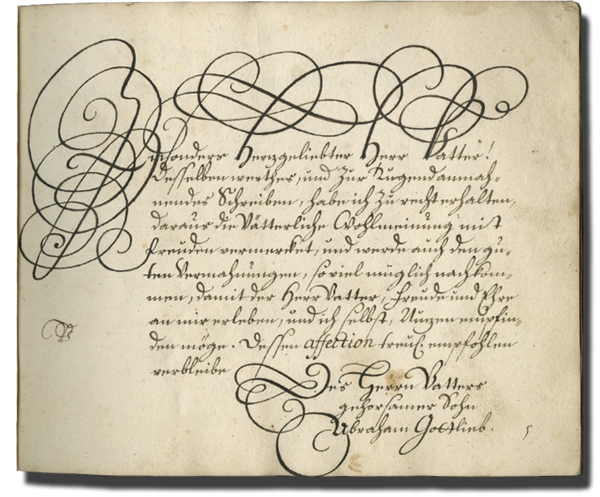 Insonders Herzgeliebter Herr Vatter!
Desselben werthes, und zur Tugend anmah-
nendes Schreiben, habe ich zu recht erhalten,
daraus die Vätterliche Wohlmeinung mit
freuden vermercket, und werde auch den gu-
ten Vermahnungen, so viel müglich nachkom-
men, damit der Herr Vatter, freude und Ehre
an mir erleben, und ich selbst, Nuzen empfin-
den möge. Dessen affection treul. empfohlen
verbleibe
Des Herrn Vatters
gehorsamer Sohn
Abraham Gottlieb.